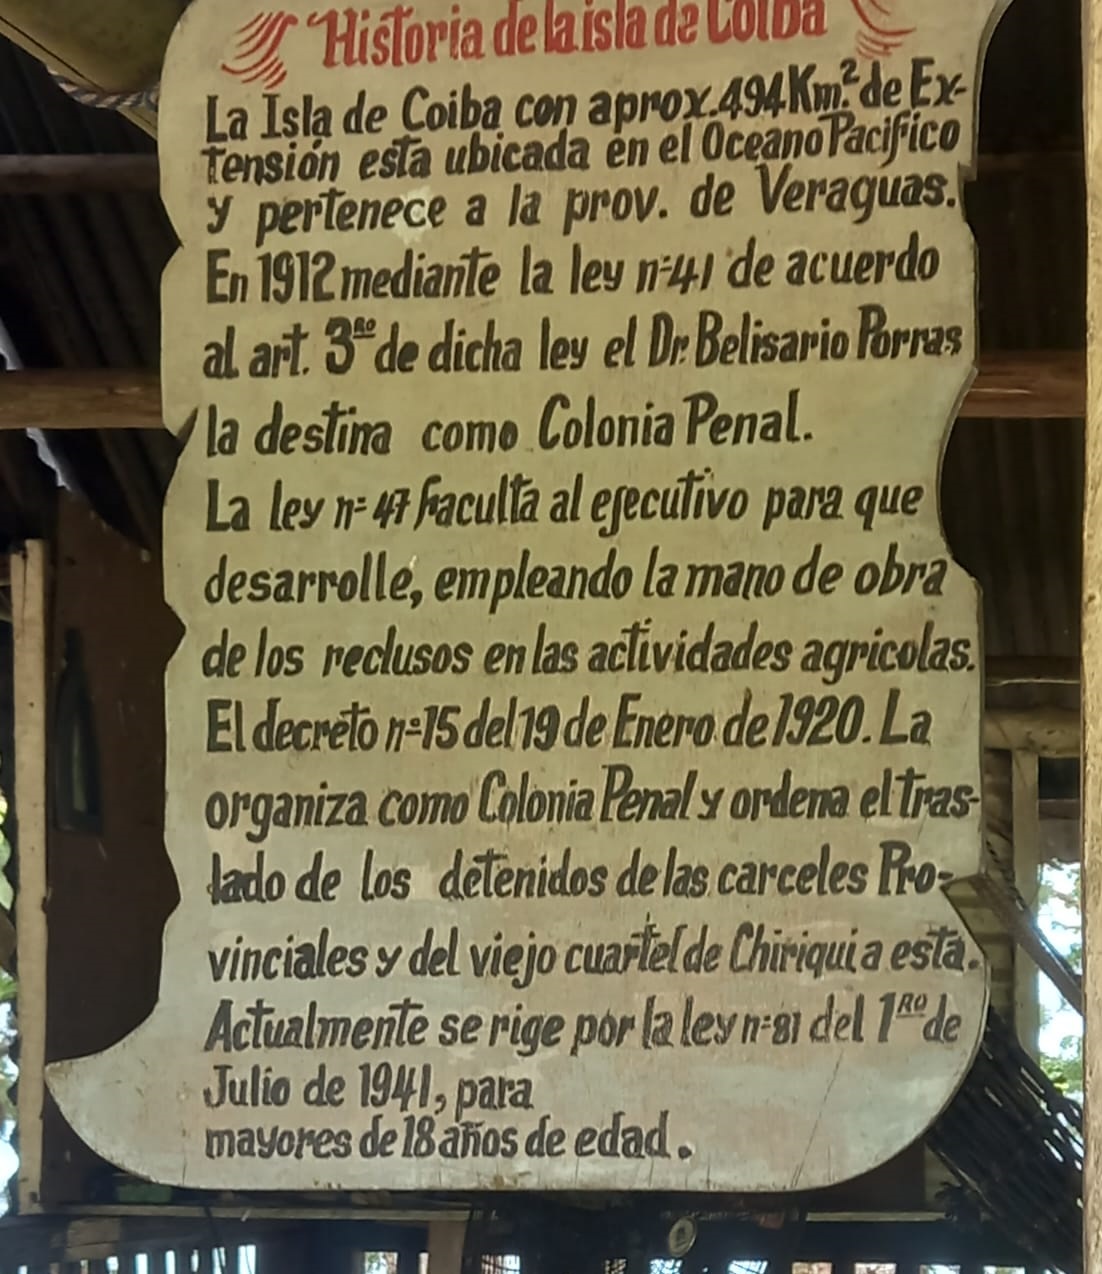 Historia de la isla de Coiba
La Isla de Coiba con aprox. 494 Km.² de Ex-
tensión esta ubicada en el Oceano Pacifico
y pertenece a la prov. de Veraguas.
En 1912 mediante la ley nº 41 de acuerdo
al art. 3ᴿᴼ de dicha ley el Dr. Belisario Porras
la destina como Colonia Penal.
La ley nº 47 faculta al ejecutivo para que
desarrolle, empleando la mano de obra
de los reclusos en las actividades agricolas.
El decreto nº 15 del 19 de Enero de 1920. La
organiza como Colonia Penal y ordena el tras-
lado de los detenidos de las carceles Pro-
vinciales y del viejo cuartel de Chiriqui a esta.
Actualmente se rige por la ley nº 81 del 1ᴿᴼ de
Julio de 1941, para
mayores de 18 años de edad.